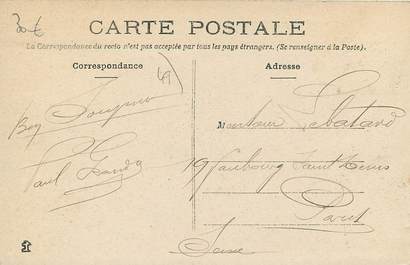 30 €
CARTE POSTALE
La Correspondance du recto n'est pas acceptée par tous les pays étrangers. (Se renseigner à la Poste).
Correspondance
Adresse
49
Paul
Monsieur Lebatard
19 faubourg Saint Denis
Paris
Seine